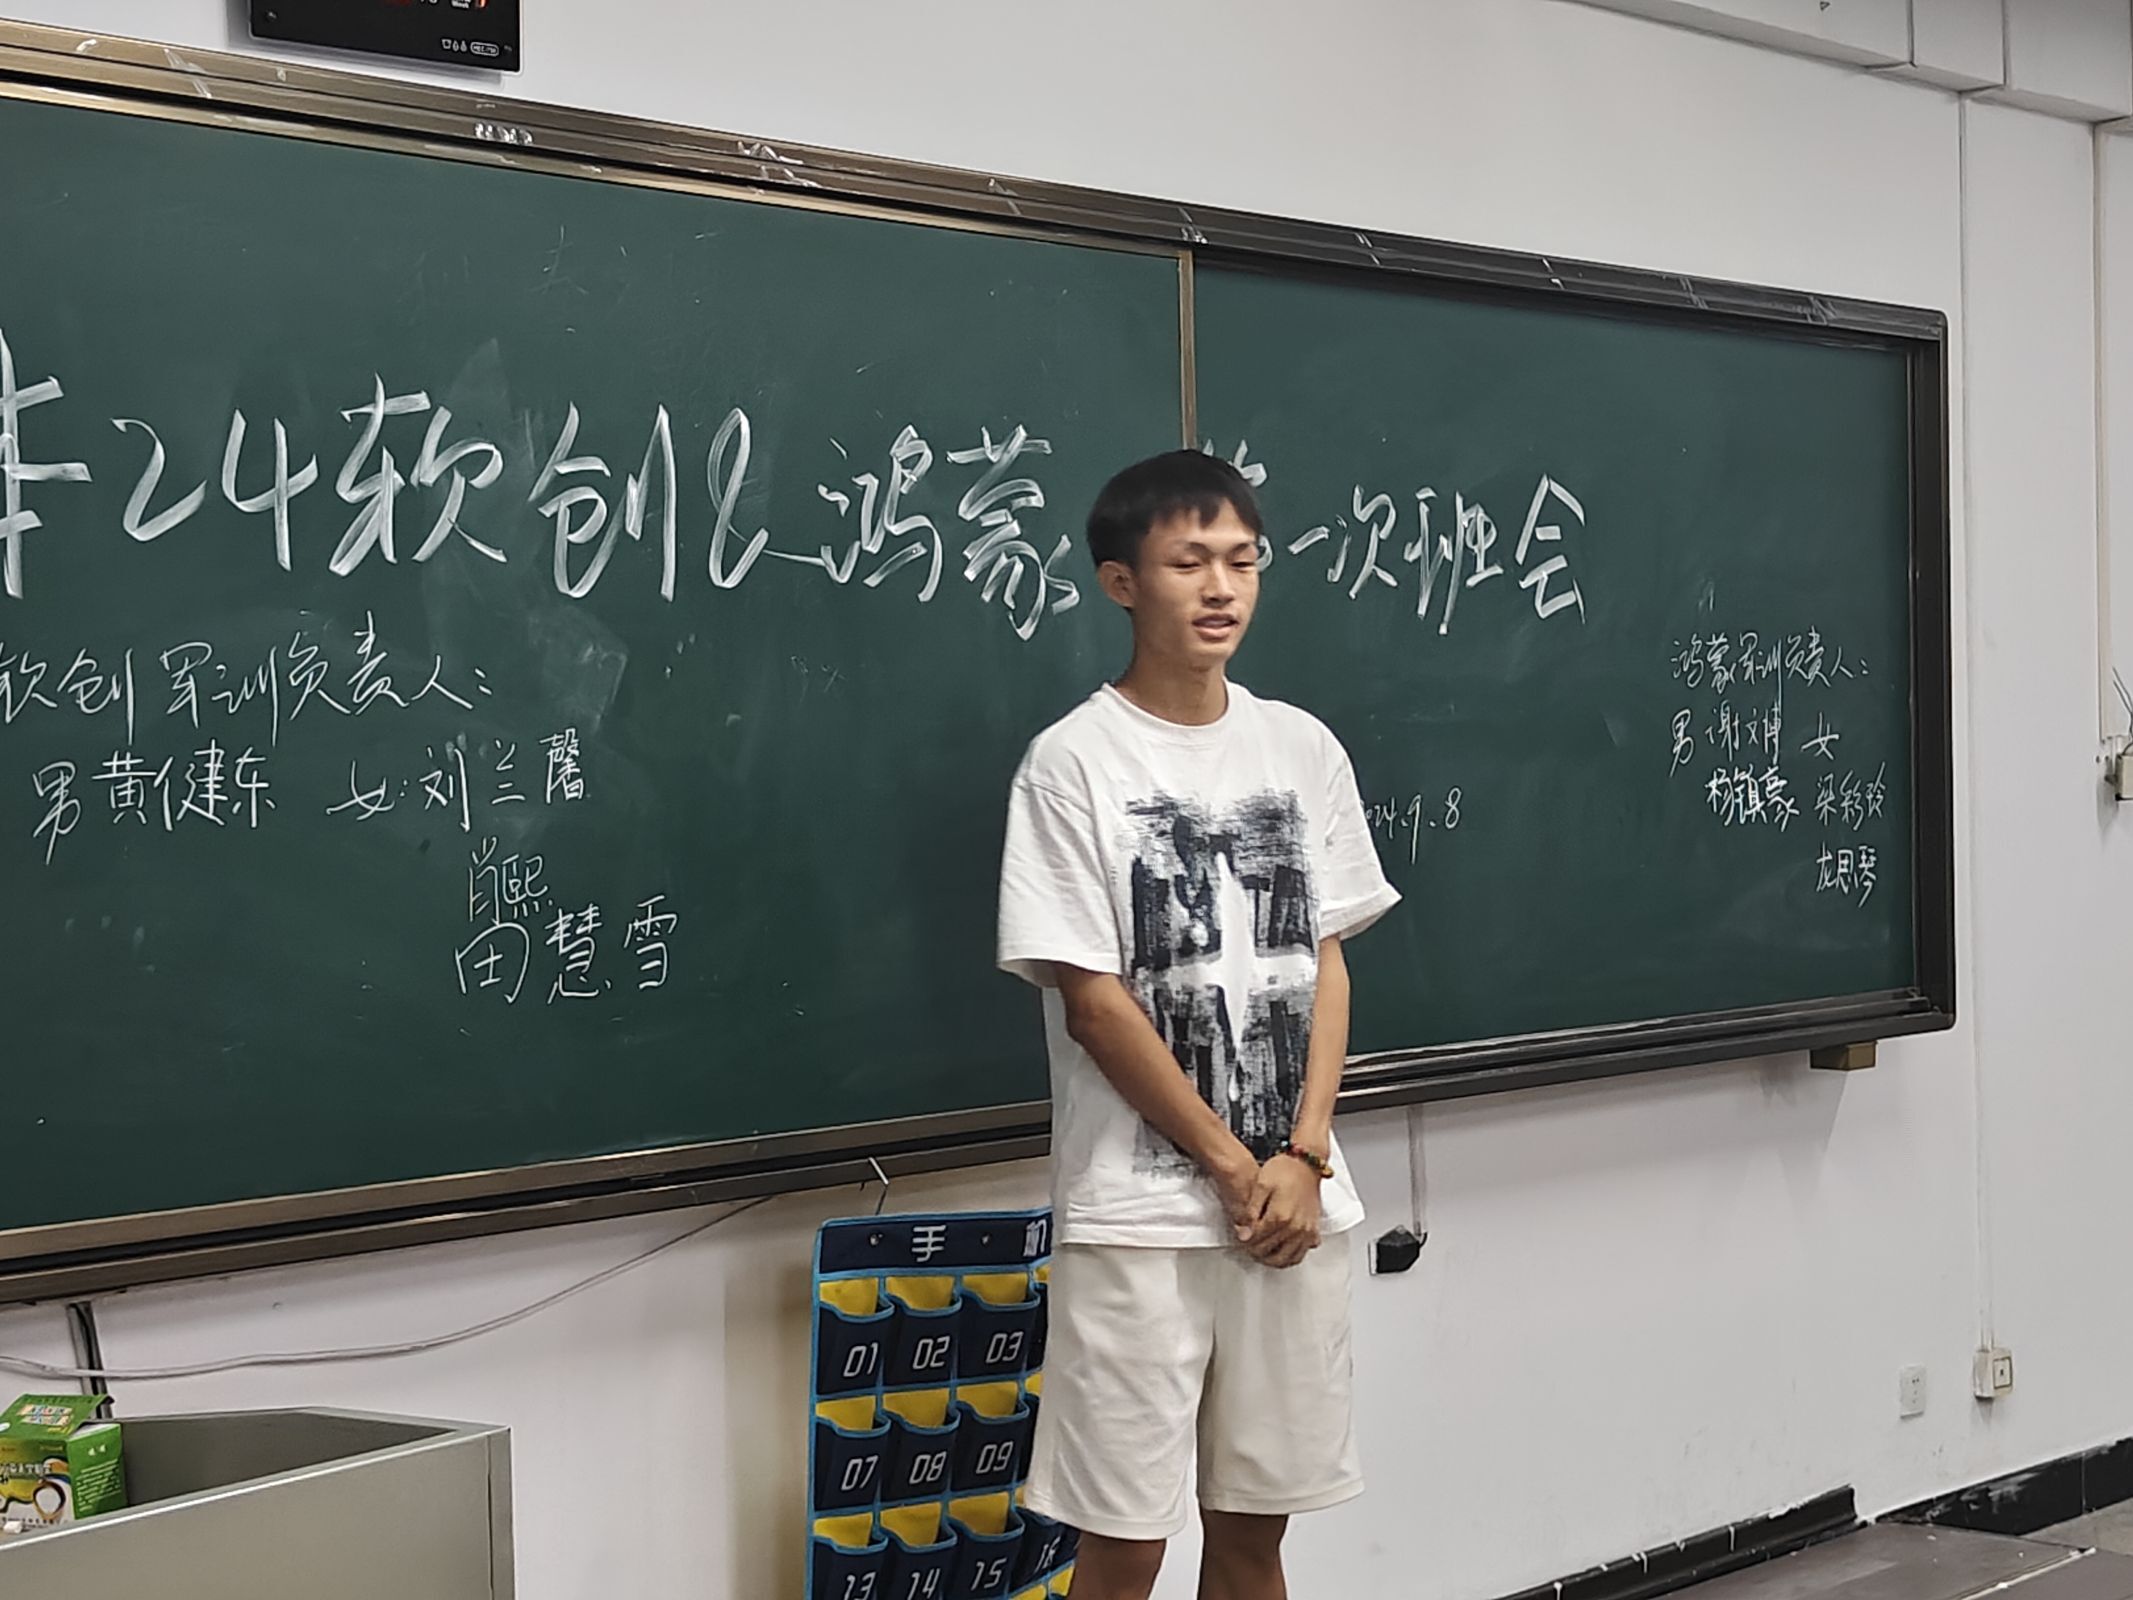 本24软创&鸿蒙第一次班会
软创军训负责人:
男黄健东 女:刘兰馨
肖熙
田慧雪
2024.9.8
鸿蒙军训负责人:
男 谢文博 女
杨镇豪 梁彩玲
龙思琴
手机
01 02 03
07 08 09
13 14 15 16